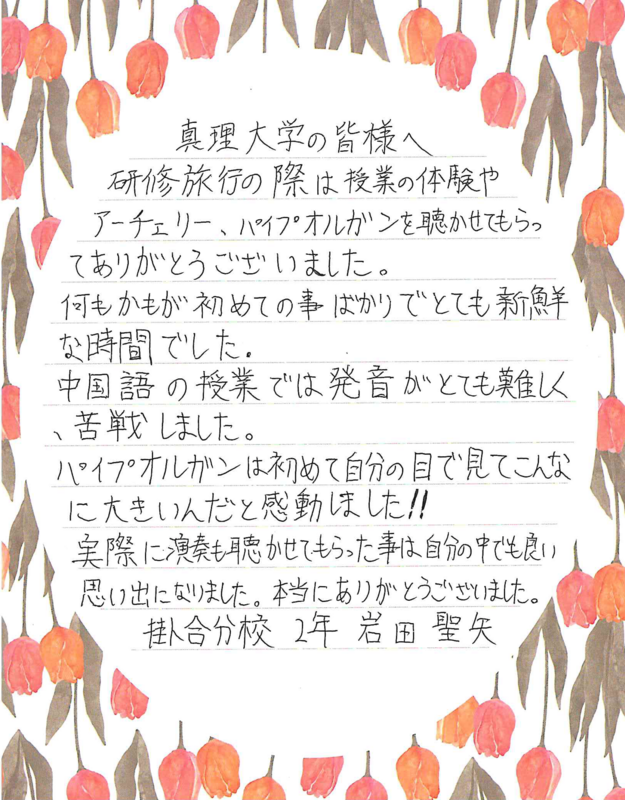 真理大学の皆様へ
研修旅行の際は授業の体験や
アーチェリー、パイプオルガンを聴かせてもらっ
てありがとうございました。
何もかもが初めての事ばかりでとても新鮮
な時間でした。
中国語の授業では発音がとても難しく
、苦戦しました。
パイプオルガンは初めて自分の目で見てこんな
に大きいんだと感動しました!!
実際に演奏も聴かせてもらった事は自分の中でも良い
思い出になりました。本当にありがとうございました。
掛合分校 2年 岩田 聖矢